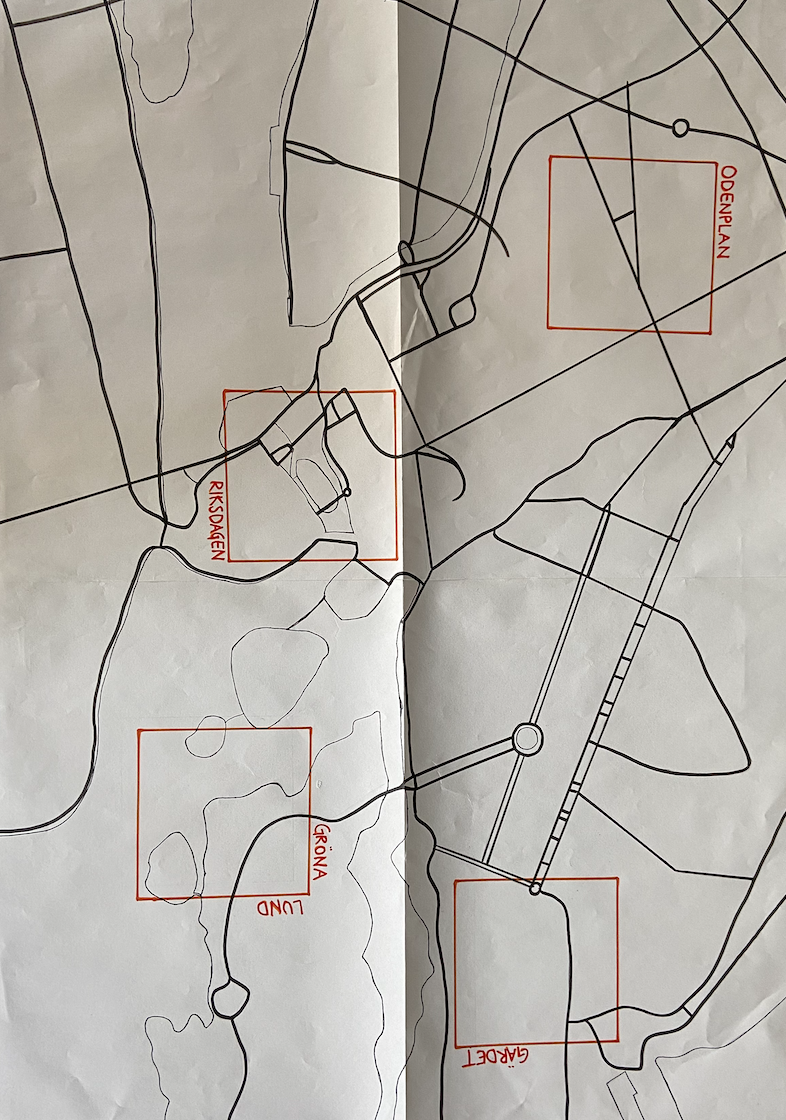 ODENPLAN
RIKSDAGEN
GRÖNA
LUND
GÄRDET